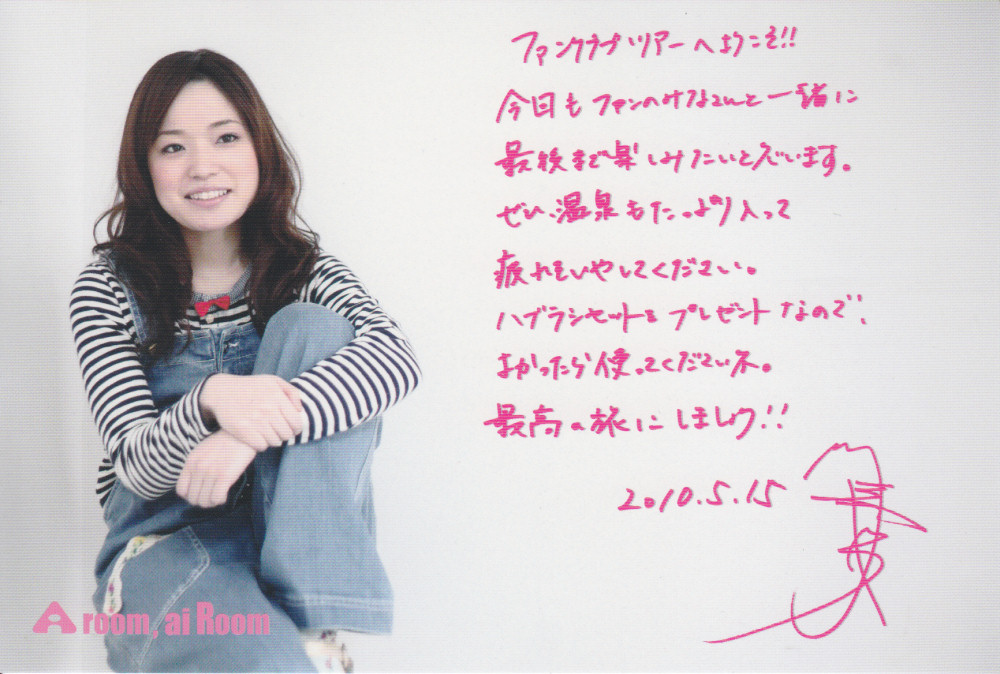 ファンクラブツアーへようこそ!!
今日もファンのみなさんと一緒に
最後まで楽しみたいと思います。
ぜひ、温泉もたっぷり入って
疲れをいやしてください。
ハブラシセットもプレゼントなので!
よかったら使ってくださいネ。
最高の旅にしましょう!!
2010.5.15
A room, ai Room